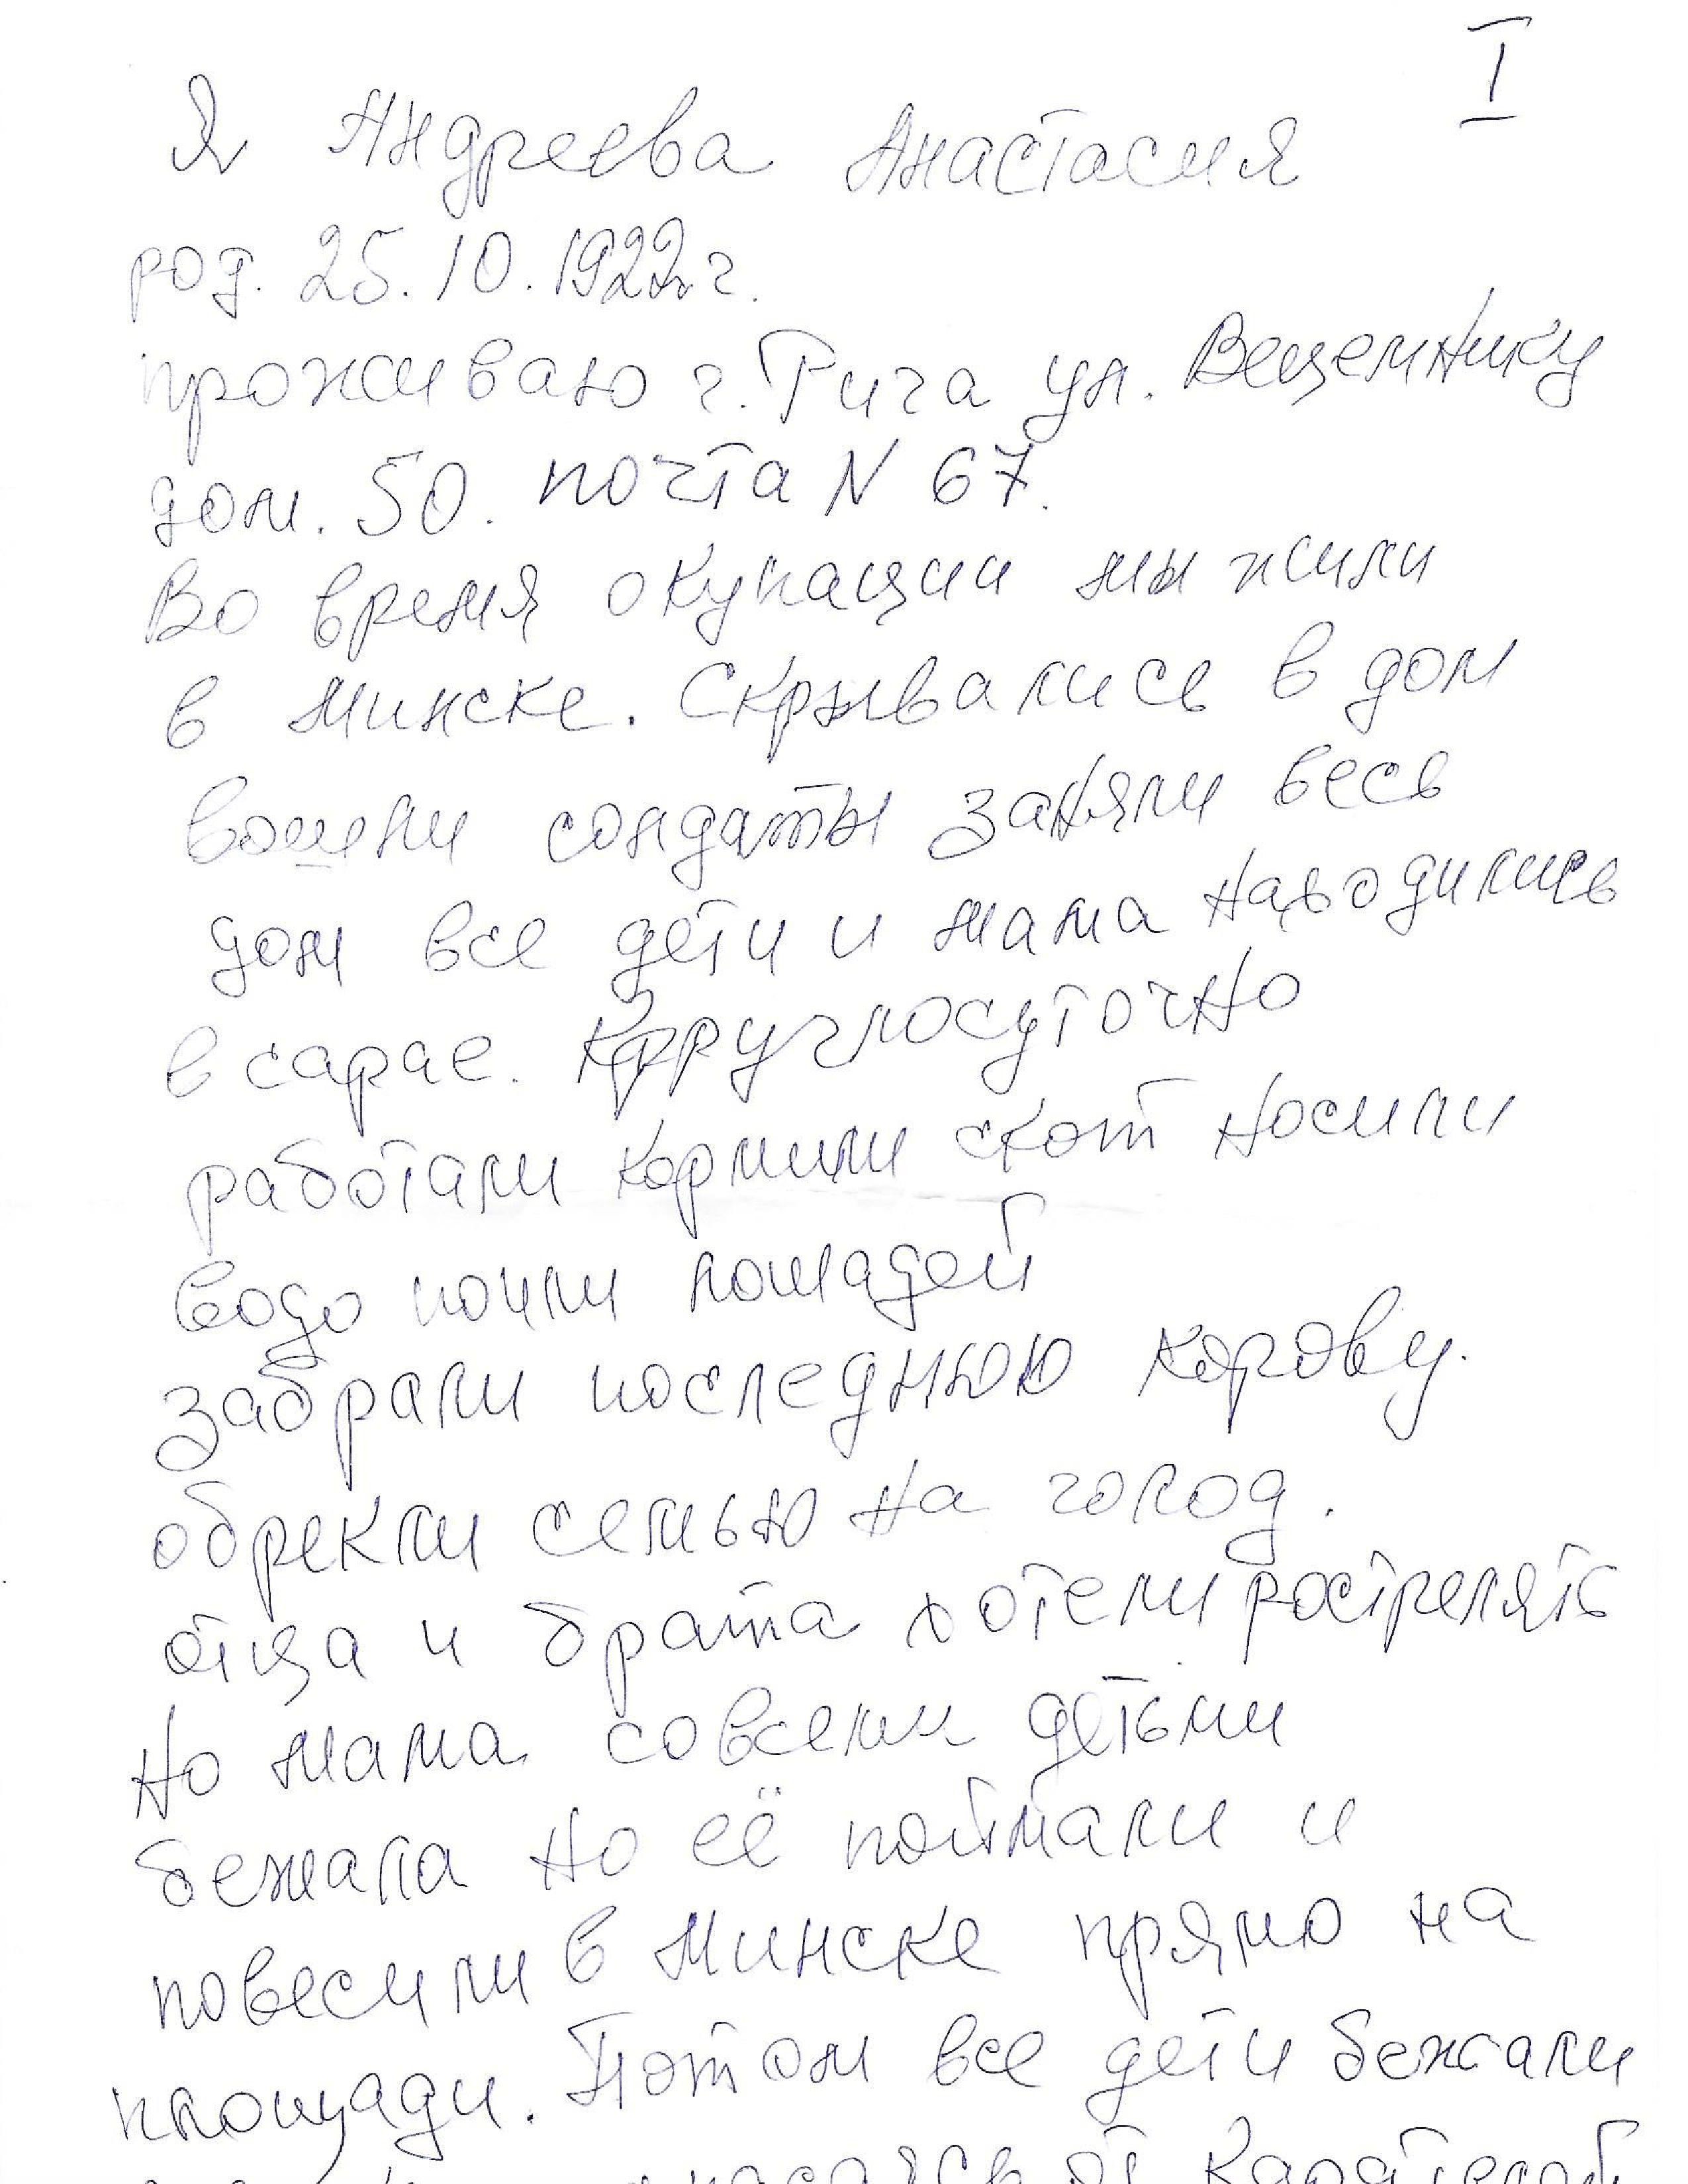 I
Я Андреева Анастасия
род. 25.10.1922 г.
проживаю г. Рига ул. Вецемнику
дом. 50. почта N 67.
Во время окупации мы жили
в Минске. Скрывались в дом
вошли солдаты заняли весь
дом все дети и мама находились
в сарае. Круглосуточно
работали кормили скот носили
водо поили лошадей
забрали последнюю корову.
обрекли семью на голод.
отца и брата хотели ростгрелять
Но мама совсеми детьми
бежала но её поймали и
повесили в Минске прямо на
площади. Потом все дети бежали
от Карателей